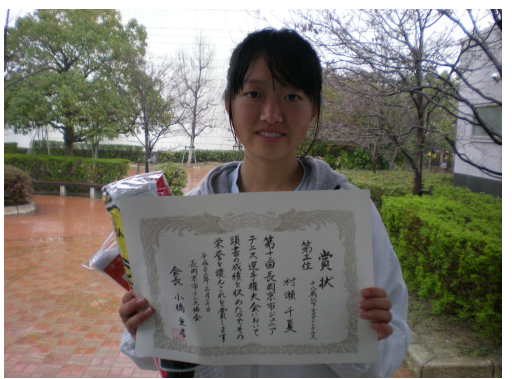 賞状
第三位
村瀬千夏
第十回長岡京市ジュニア
テニス選手権大会において
頭書の成績を収めたのでその
栄誉を讃えこれを賞します
長岡京市テニス協会
会長 小橋